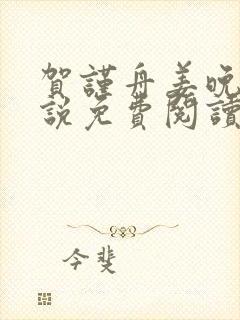 賀謹舟姜晚
說免費閱讀
今斐